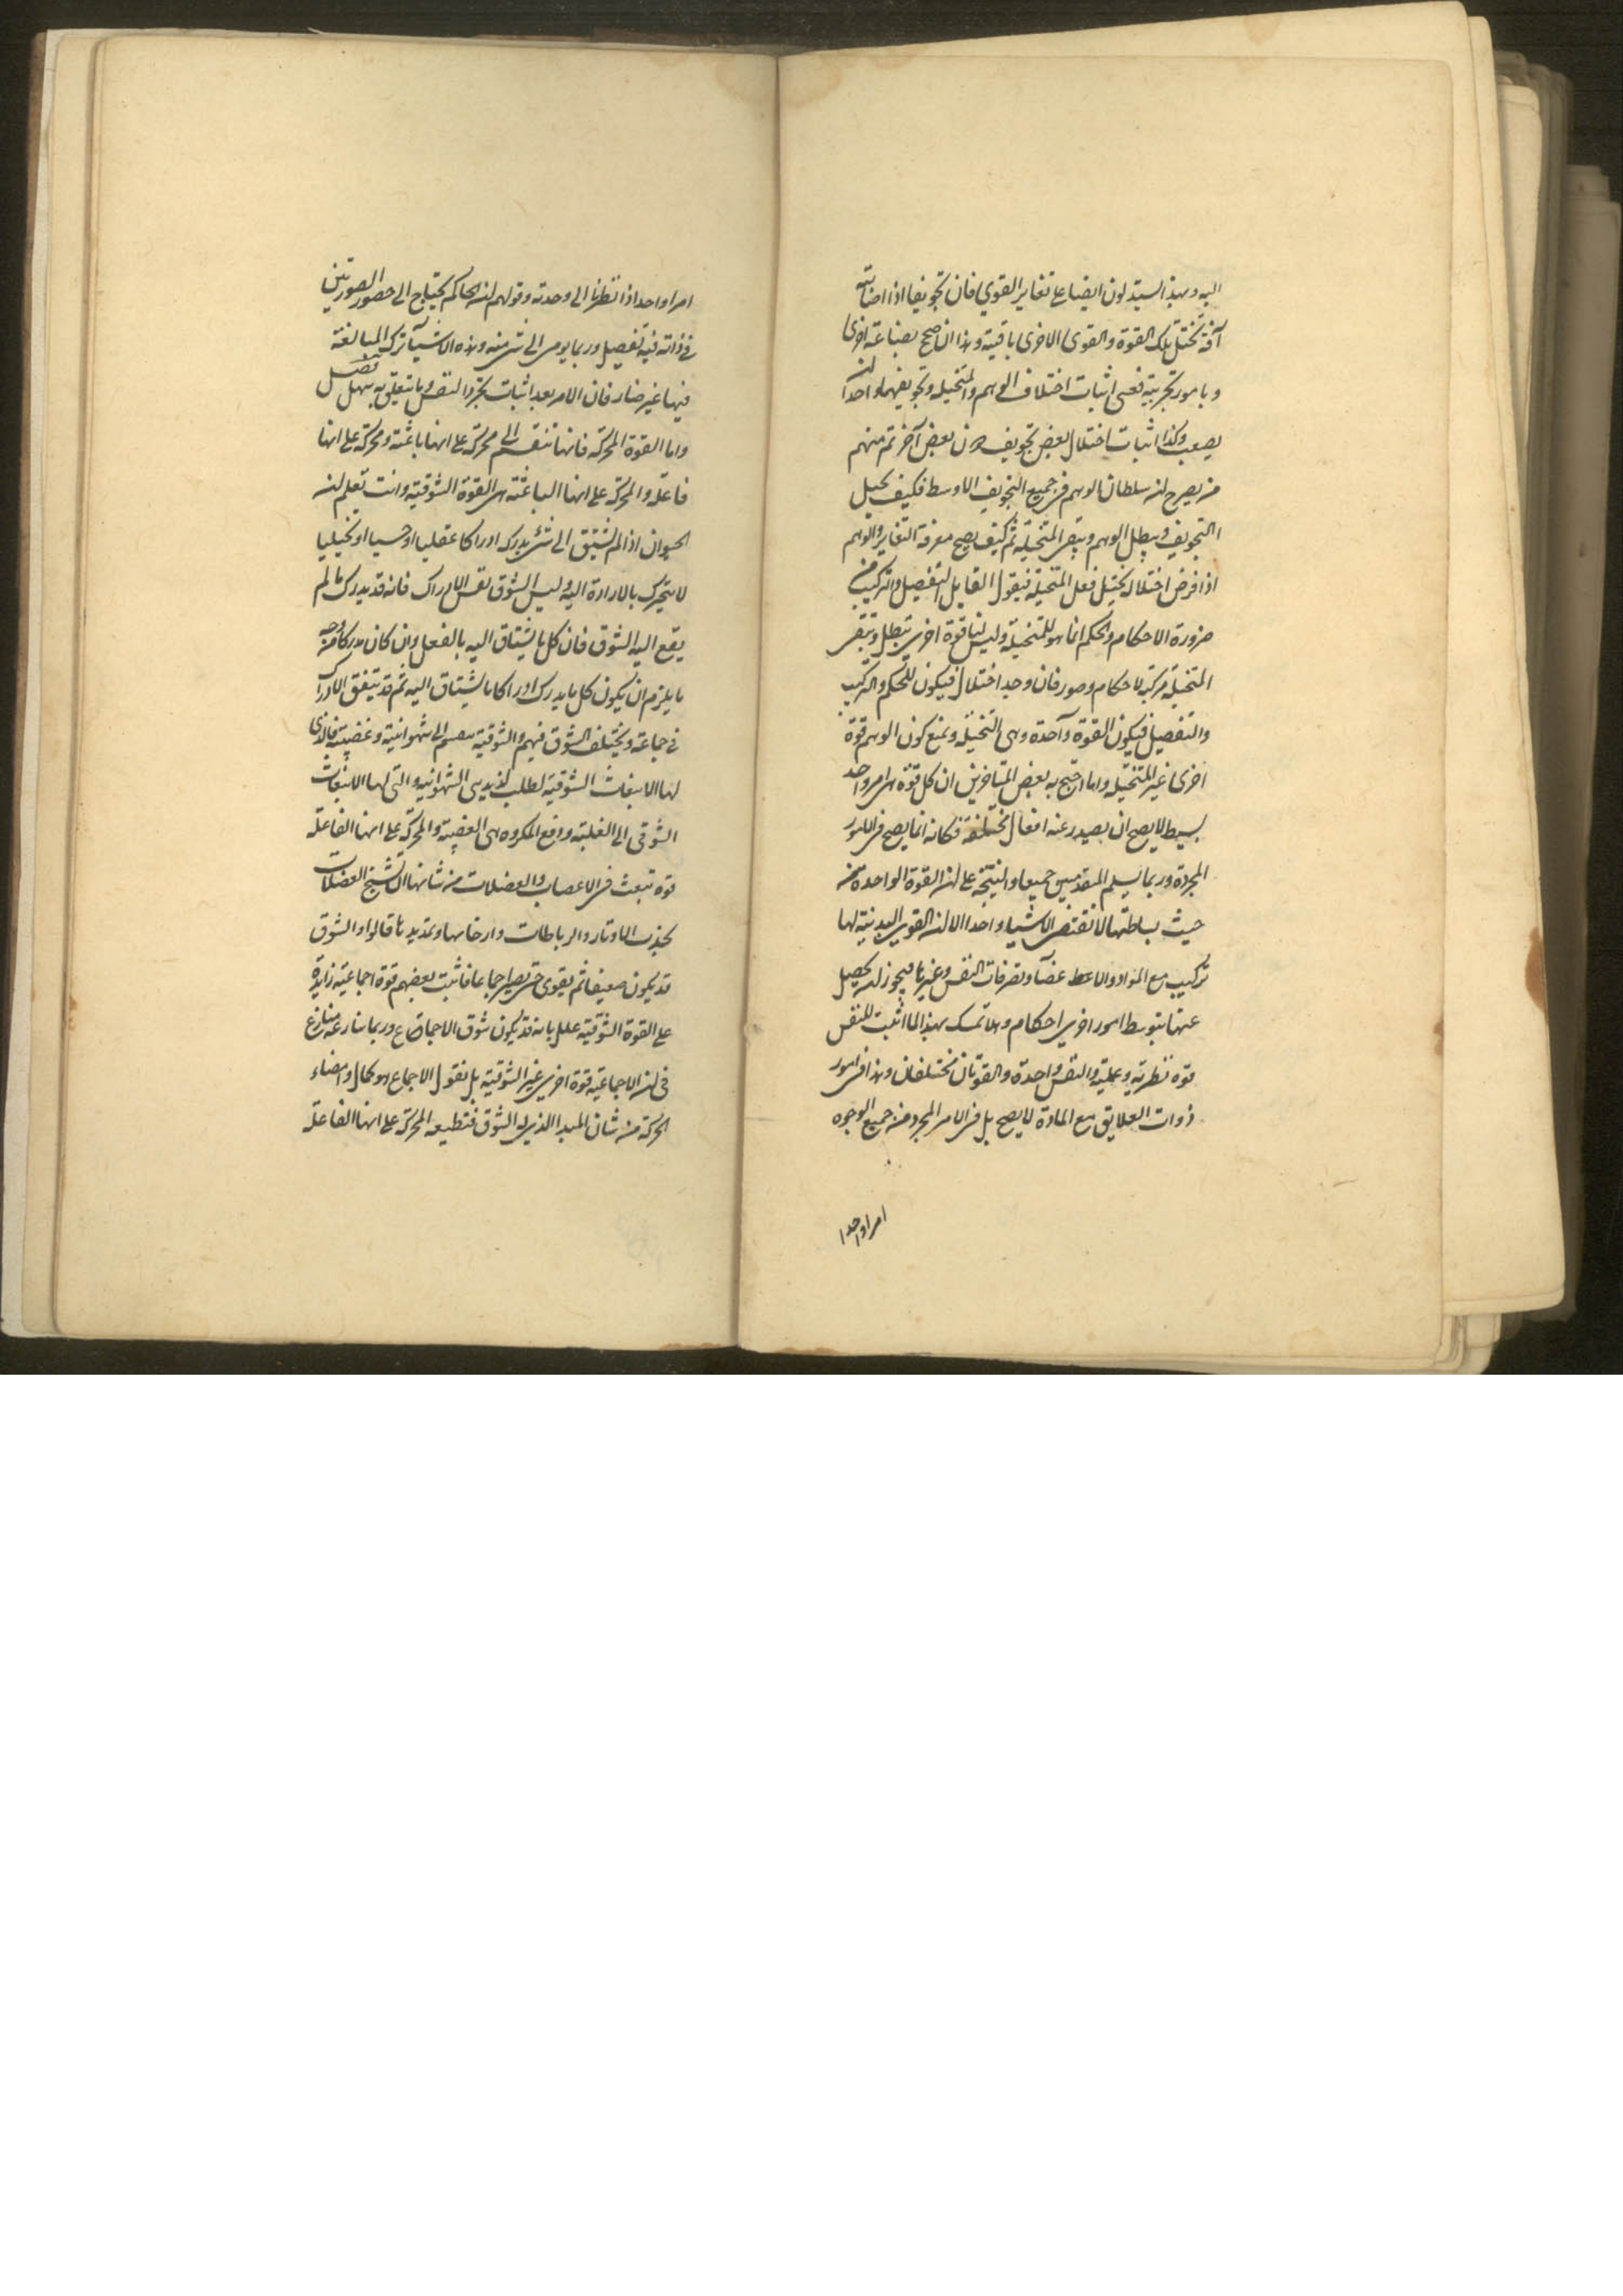 اليه وبهذا يستدلون ايضا على تغاير القوى فان تجويفا اذا اصابته
آفة تختل تلك القوة والقوى الاخرى باقية وهذا ان صح بصناعة اخرى
وبامور تجربية فعسى اثبات اختلاف الوهم والمتخيلة وتجويفهما واحد ان
يصعب وكذا اثبات اختلال بعض تجويف دون بعض آخر ثم منهم
من يصرح ان سلطان الوهم في جميع التجويف الاوسط فكيف يختل
التجويف ويبطل الوهم ويبقى المتخيلة ثم كيف يصح معرفة التغاير والوهم
اذا فرض اختلاله يختل فعل المتخيلة فيقول القايل التفصيل والتركيب من
ضرورة الاحكام والحكم انما هو للمتخيلة وليس لنا قوة اخرى تبطل وتبقى
المتخيلة مركبة لاحكام وصور فان وجد اختلال فيكون للحكم والتركيب
والتفصيل فيكون القوة واحدة وهي المتخيلة ونمنع كون الوهم قوة
اخرى غير المتخيلة واما احتج به بعض المتاخرين ان كل قوة هي امر واحد
بسيط لا يصح ان يصدر عنه افعال مختلفة فكانه انما يصح في الامور
المجردة وربما نسلم المقدمتين جميعا والنتيجة على ان القوة الواحدة من
حيث بساطتها لا تقتضي الاشياء واحدا الا ان القوى البدنية لها
تركيب مع المواد والاعضاء وتصرفات النفس وغيرها فيجوز ان يحصل
عنها بتوسط امور اخرى احكام ولا تمسك بهذا لما اثبت للنفس
قوة نظرية وعملية والنفس واحدة والقوتان مختلفان وهذا في امور
ذوات العلايق مع المادة لا يصح بل في الامر المجرد من جميع الوجوه
امرا واحدا
امرا واحدا اذا نظرنا الى وحدته وقولهم ان الحاكم يحتاج الى حضور الصورتين
في ذاته فيه تفصيل وربما يومى الى شئ منه وهذه الاشياء ترك المبالغة
فيها غير ضار فان الامر بعد اثبات تجرد النفس وما يتعلق به سهل فصل
واما القوة المحركة فانها تنقسم الى محركة على انها باعثة ومحركة على انها
فاعلة والمحركة على انها الباعثة هي القوة الشوقية وانت تعلم ان
الحيوان اذا لم يشتق الى شئ يدركه ادراكا عقليا او حسيا او تخيليا
لا يتحرك بالارادة اليه وليس الشوق نفس الادراك فانه قد يدرك ما لم
يقع اليه الشوق فان كل ما يشتاق اليه بالفعل وان كان مدركا من وجه
ما يلزم ان يكون كل ما يدرك ادراكا ما يشتاق اليه ثم قد يتفق الادراك
في جماعة ويختلف الشوق فيهم والشوقية تنقسم الى شهوانية وغضبية فالذى
لها الانبعاث الشوقية لطلب لذيذ هي الشهوانية والتي لها الانبعاث
الشوقي الى الغلبة ودفع المكروه هي الغضبية والمحركة على انها الفاعلة
قوة تبعث في الاعصاب والعضلات من شانها ان تشنج العضلات
بجذب الاوتار والرباطات وارخائها وتمديدها قالوا والشوق
قد يكون ضعيفا ثم يقوى حتى يصير اجماعا فاثبت بعضهم قوة اجماعية زايدة
على القوة الشوقية علل بانه قد يكون شوق الاجماع وربما ينازعه منازع
في ان الاجماعية قوة اخرى غير الشوقية بل نقول الاجماع هو كمال وامضاء
الحركة من شان المبدا الذي له الشوق فتطيعه المحركة على انها الفاعلة